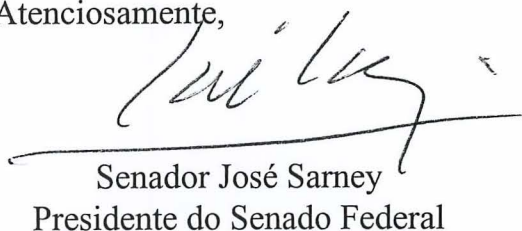 Atenciosamente,
Senador José Sarney
Presidente do Senado Federal